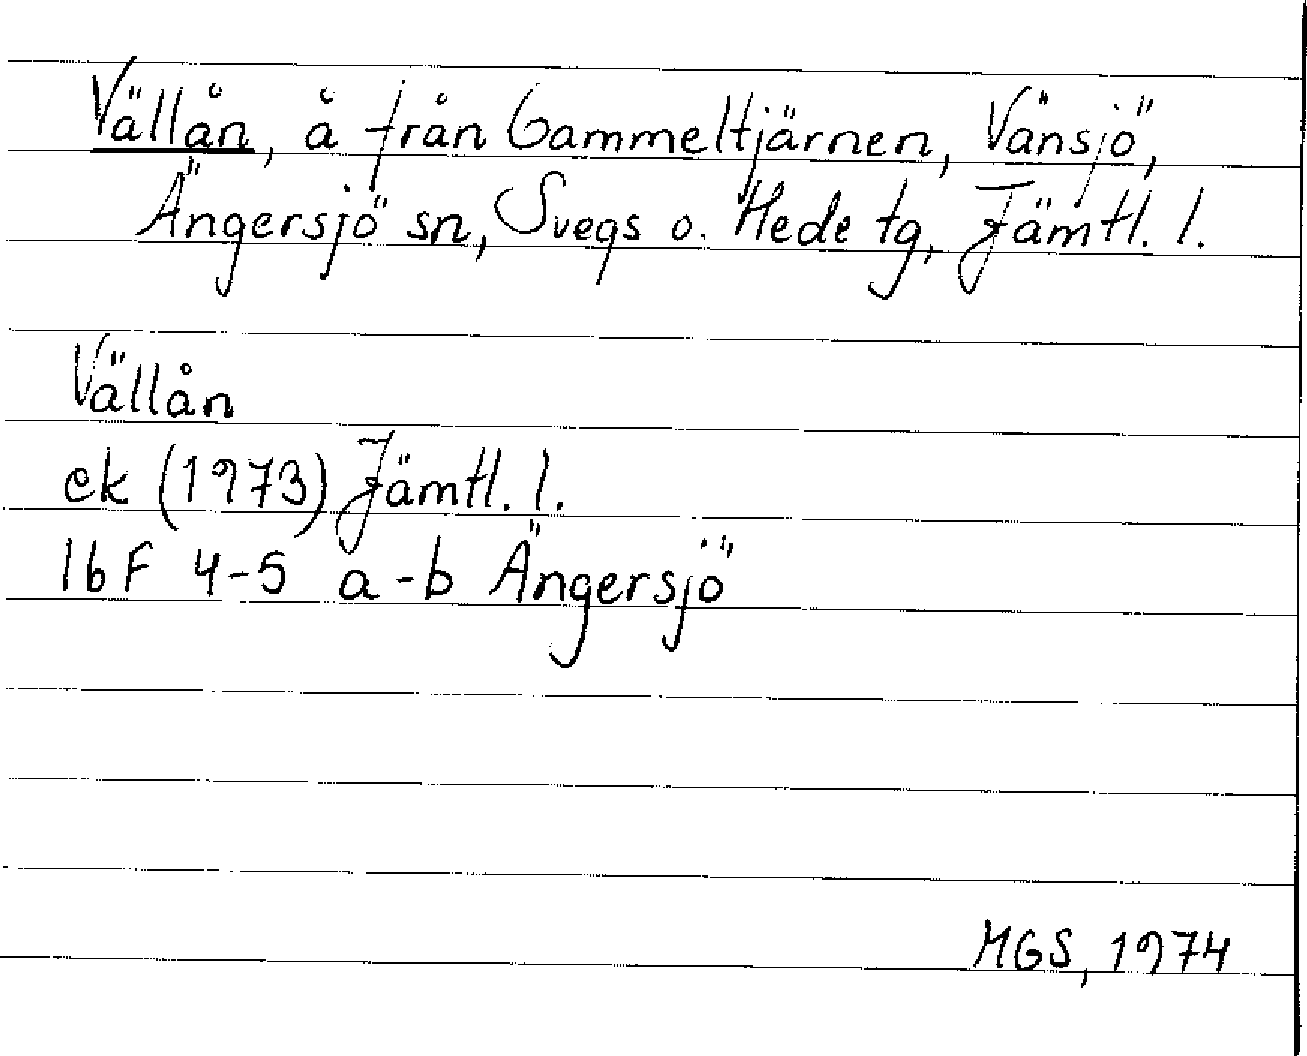 Vällån, å från Gammeltjärnen, Vänsjö,
Ängersjö sn, Svegs o. Hede tg, Jämtl. l.
Vällån
ek (1973) Jämtl. l.
16F 4-5 a-b Ängersjö
MGS, 1974